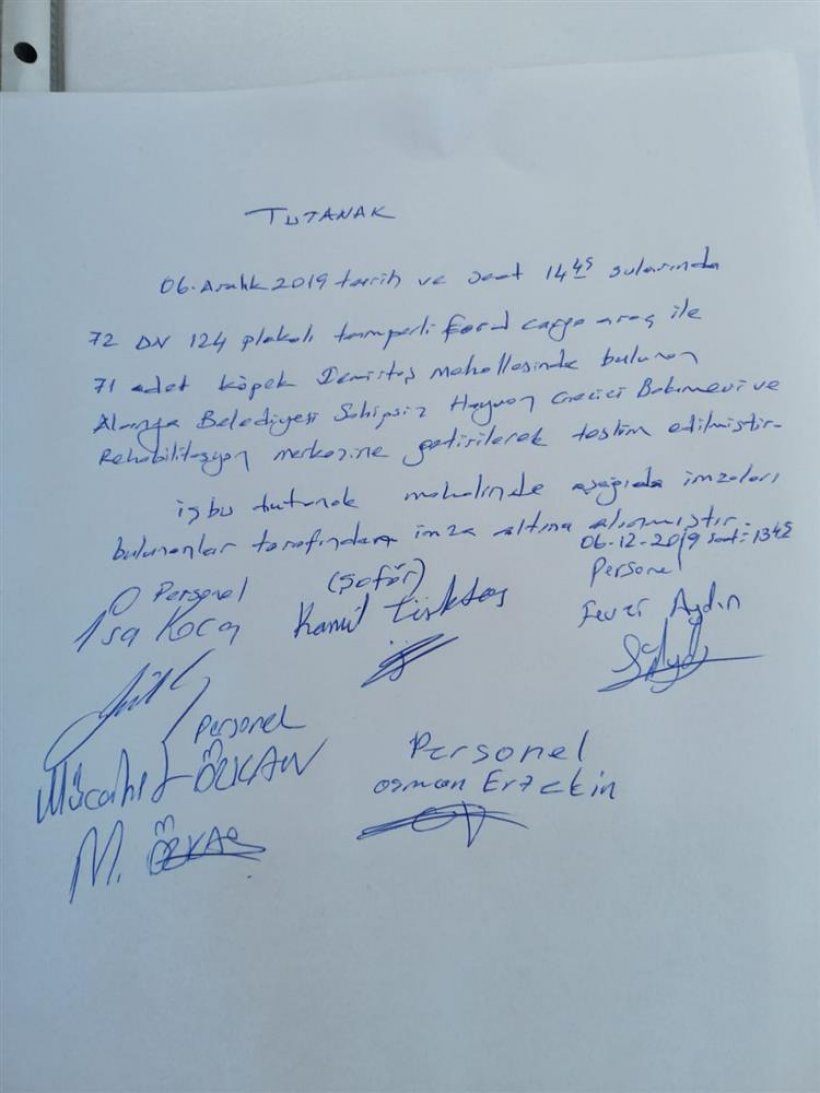 TUTANAK
06.Aralık 2019 tarih ve saat 14 45 sularında
72 DN 124 plakalı damperli Ford cargo araç ile
71 adet köpek Demirtaş mahallesinde bulunan
Alanya Belediyesi Sahipsiz Hayvan Gecici Bakımevi ve
Rehabilitasyon merkezine getirilerek teslim edilmiştir.
işbu tutanak mahalinde aşağıda imzaları
bulunanlar tarafından imza altına alınmıştır.
06-12-2019 saat: 13 45
Personel (şoför) Personel
İsa Koca Kamil Aydın
Personel
Mücahit ÖZKAN
Personel
Osman
M. ÖZKAN